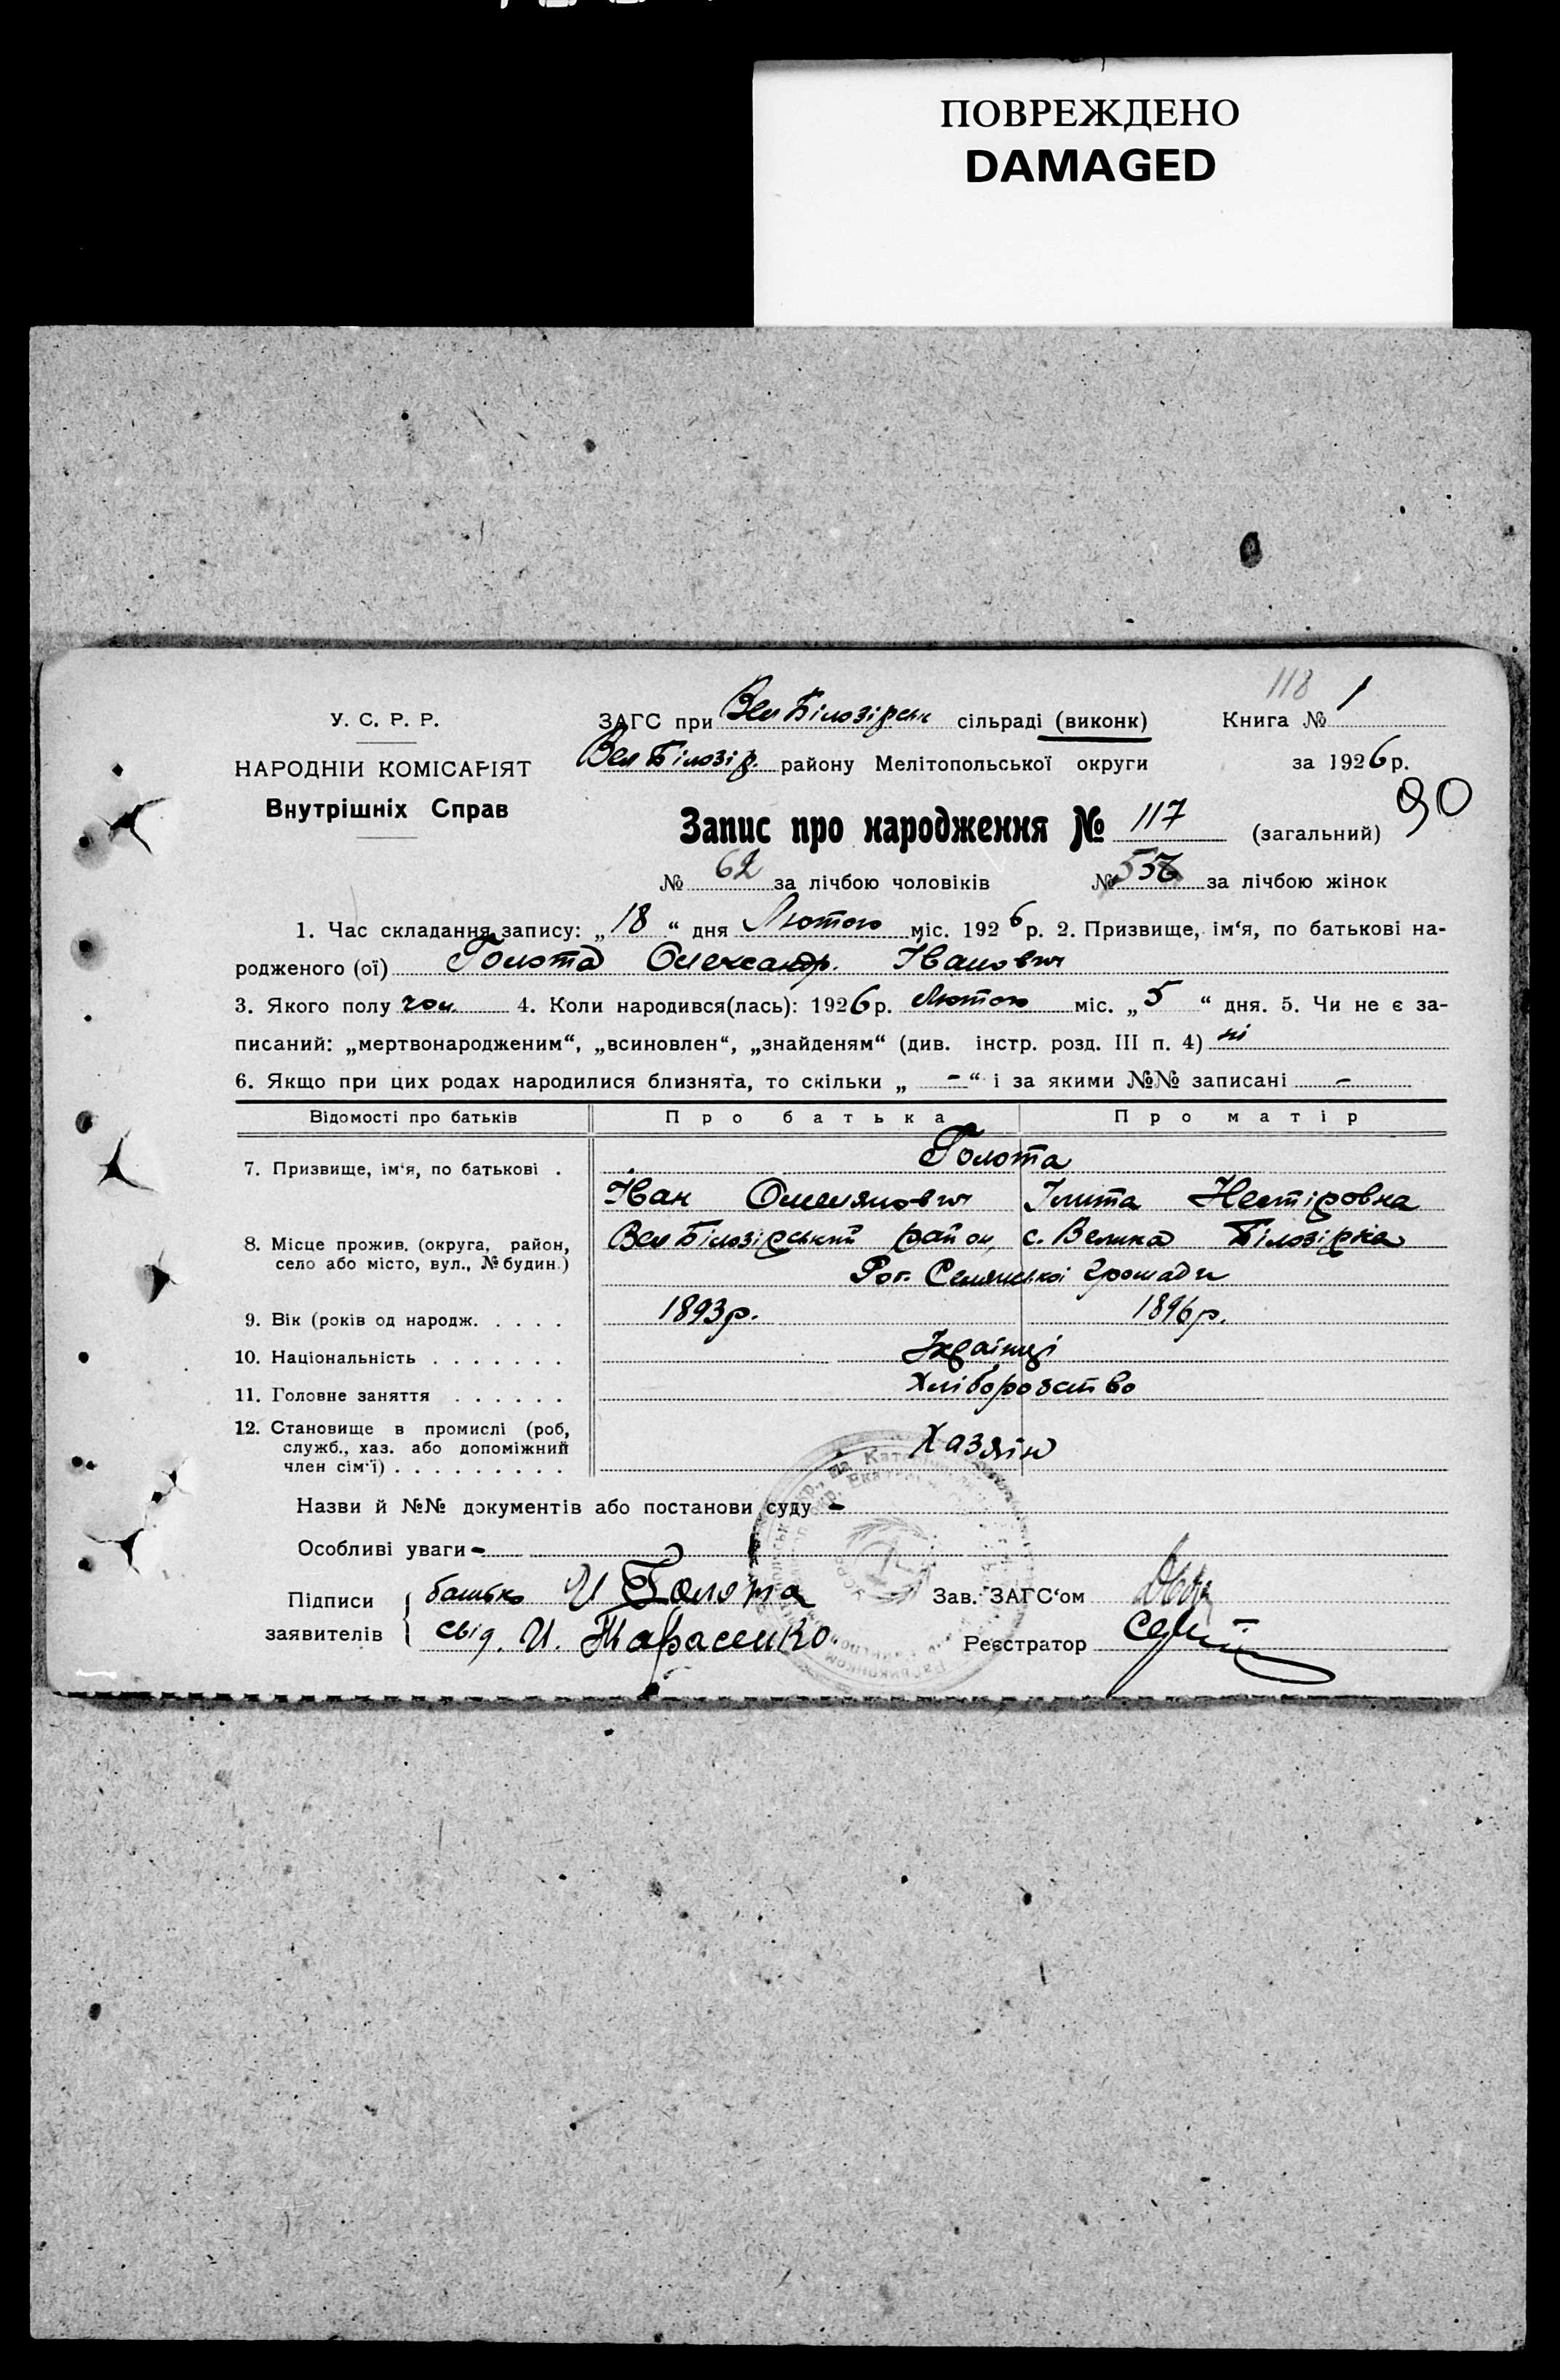 ПОВРЕЖДЕНО
DAMAGED
118
У. С. Р. Р. ЗАГС при Вел Білозірськ сільраді (виконк) Книга № 1
НАРОДНІЙ КОМІСАРІЯТ Вел Білозір. району Мелітопольської округи за 1926 р.
Внутрішніх Справ
90
Запис про народження № 117 (загальний)
№ 62 за лічбою чоловіків № за лічбою жінок
1. Час складання запису: „18“ дня Лютого міс. 1926 р. 2. Призвище, ім‘я, по батькові на-
родженого (ої) Голота Олександр. Іванович
3. Якого полу чол. 4. Коли народився(лась): 1926 р. Лютого міс. „5“ дня. 5. Чи не є за-
писаний: „мертвонародженим“, „всиновлен“, „знайденям“ (див. інстр. розд. III п. 4) ні
6. Якщо при цих родах народилися близнята, то скільки „ - “ і за якими №№ записані -
Відомості про батьків Про батька Про матір
7. Призвище, ім‘я, по батькові . Голота
Іван Омелянович Нестіровна
8. Місце прожив. (округа, район, Вел Білозірський район, с. Велика Білозірка
село або місто, вул., № будин.) Рог. Семянської громади
9. Вік (років од народж. . . . . 1893 р. 1896 р.
10. Національність . . . . . . . Українці
11. Головне заняття . . . . . . Хліборобство
12. Становище в промислі (роб,
служб., хаз. або допоміжний Хазяін
член сім‘ї) . . . . . . . . .
Назви й №№ документів або постанови суду -
Особливі уваги -
Підписи батько И Голота Зав. ЗАГС‘ом
заявителів свід. И. Тарасенко Реєстратор